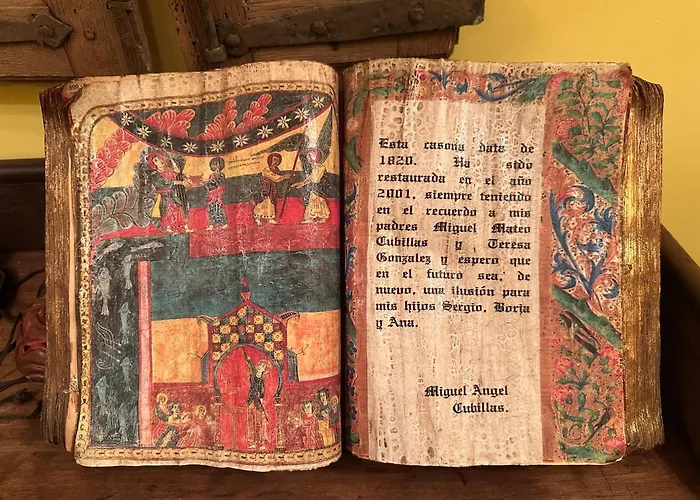 Esta casona data de
1820. Ha sido
restaurada en el año
2001, siempre teniendo
en el recuerdo a mis
padres Miguel Mateo
Cubillas y Teresa
Gonzalez y espero que
en el futuro sea, de
nuevo, una ilusión para
mis hijos Sergio, Borja
y Ana.
Miguel Angel
Cubillas.